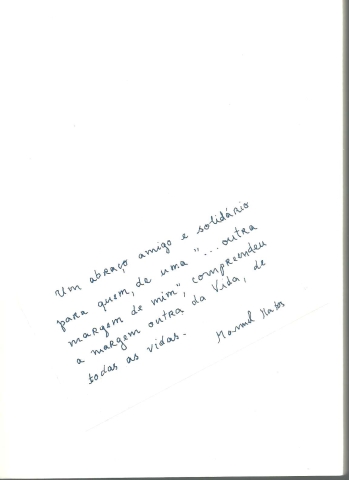 Um abraço amigo e solidário
para quem, de uma "...outra
margem de mim", compreendeu
a margem outra da Vida, de
todas as vidas.
Manuel Matos